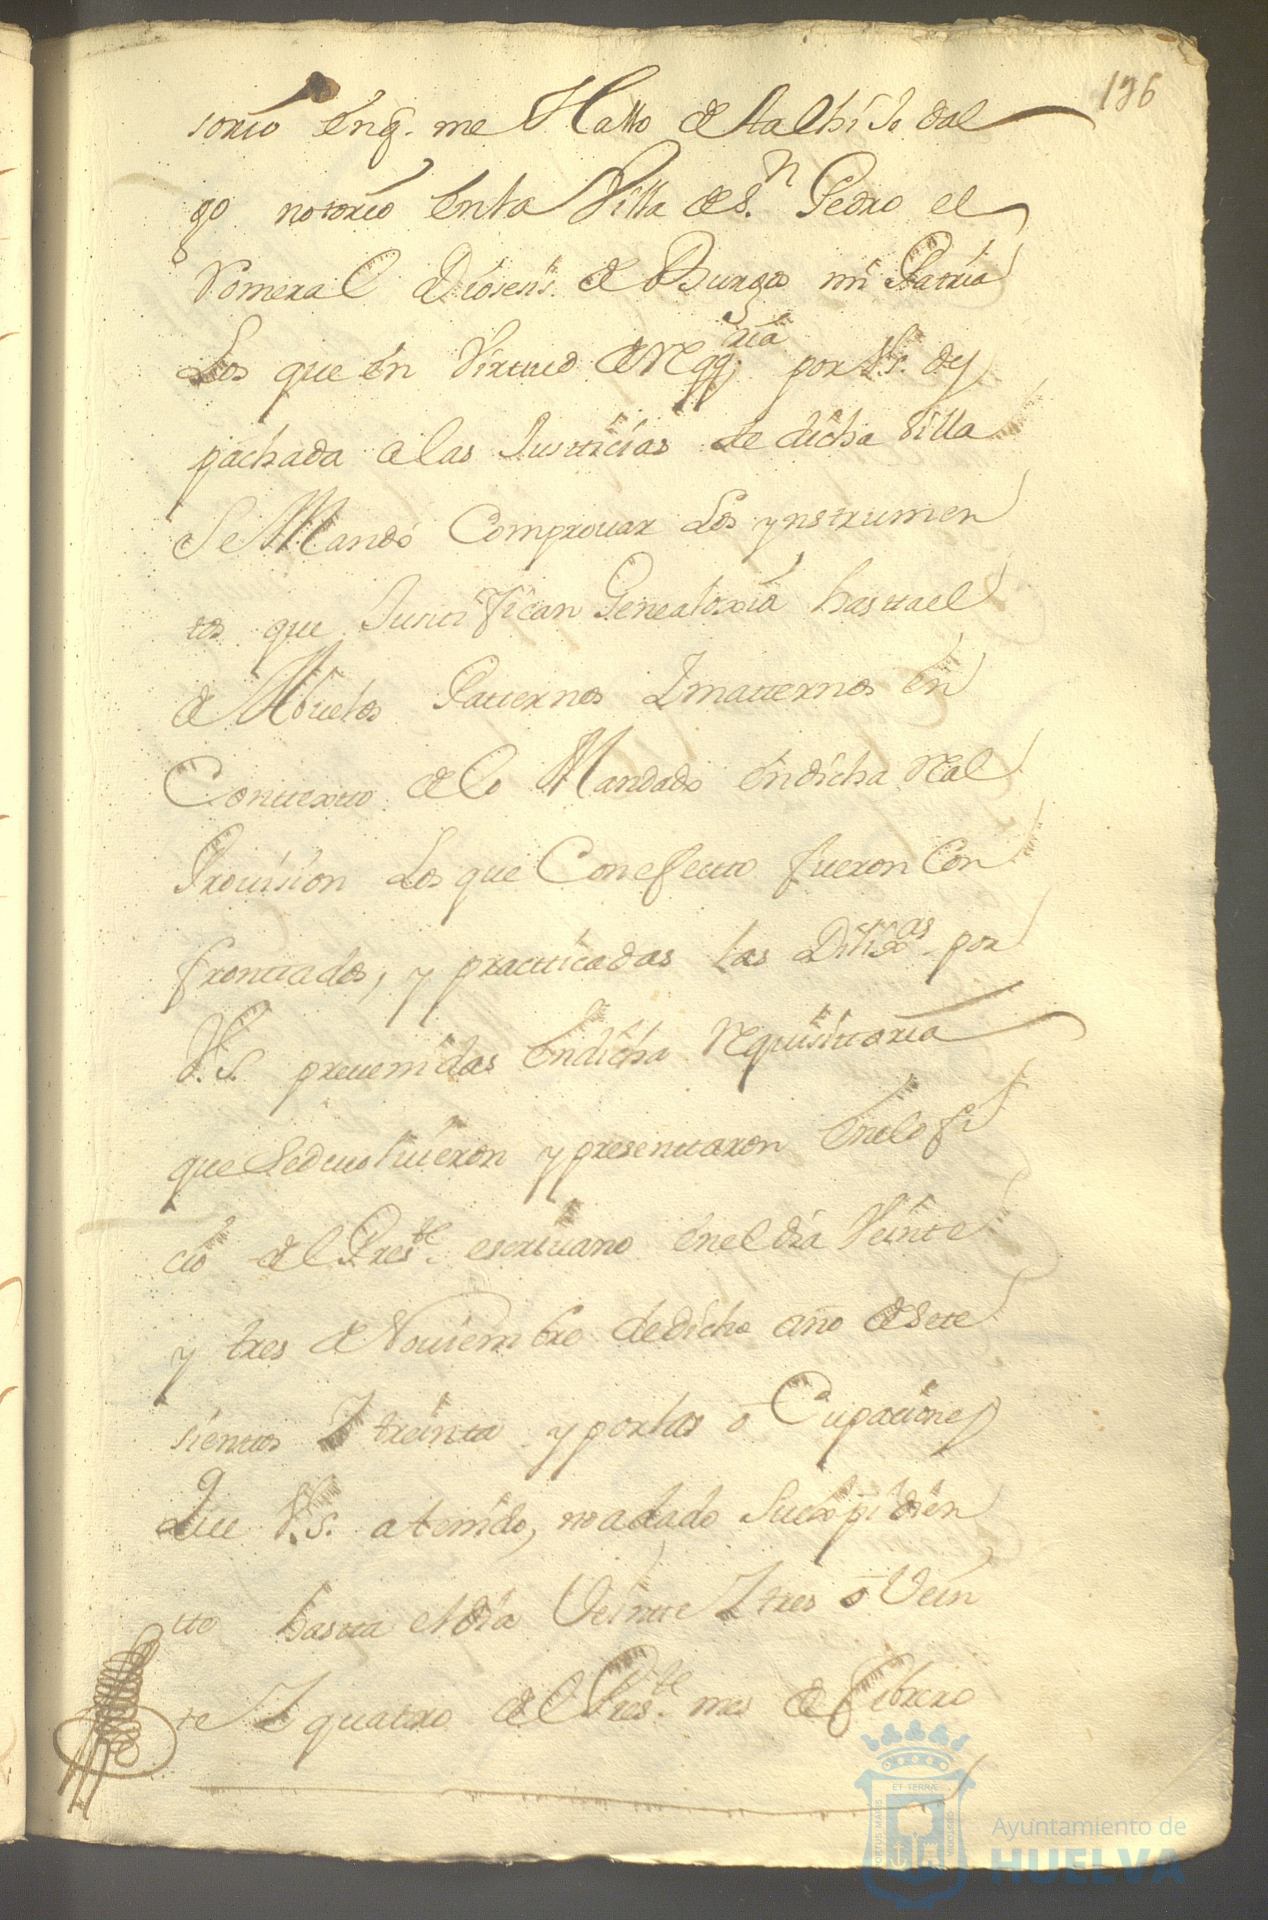 196
sorio enq. me Hallo de tal hijo dal
go notorio en la Villa de S.n Pedro el
Romeral Diosesis de Burgos mi Patria
Los que en Virtud de Rqq.ria por V.S. des
pachada a las Justicias de dicha Villa
Se Mandó Comprovar Los ynstrumen
tos que Justtifican Genealoxia hastael
de Abuelos Patternos Y matternos en
Conttextto de lo Mandado en dicha Real
Provision Los que Con efectto fueron Con
fronttados, y practticadas las Dilix.as por
V.S. prevenidas en dicha Requisittoria
que se devolvieron y presenttaron en el ofi
cio del Pres.te escrivano en el dia Veinte
y tres de Noviembre de dicho año de sete
sienttos Y treinta y por las oCupaciones
Que V.S. a tenido, no a dado Su expidien
tte hastta el dia Veintte Y tres o Vein
te Y quatro del Pres.te mes de febrero
ET TERRÆ
PORTUS MARIS
CUSTODIA
Ayuntamiento de
HUELVA